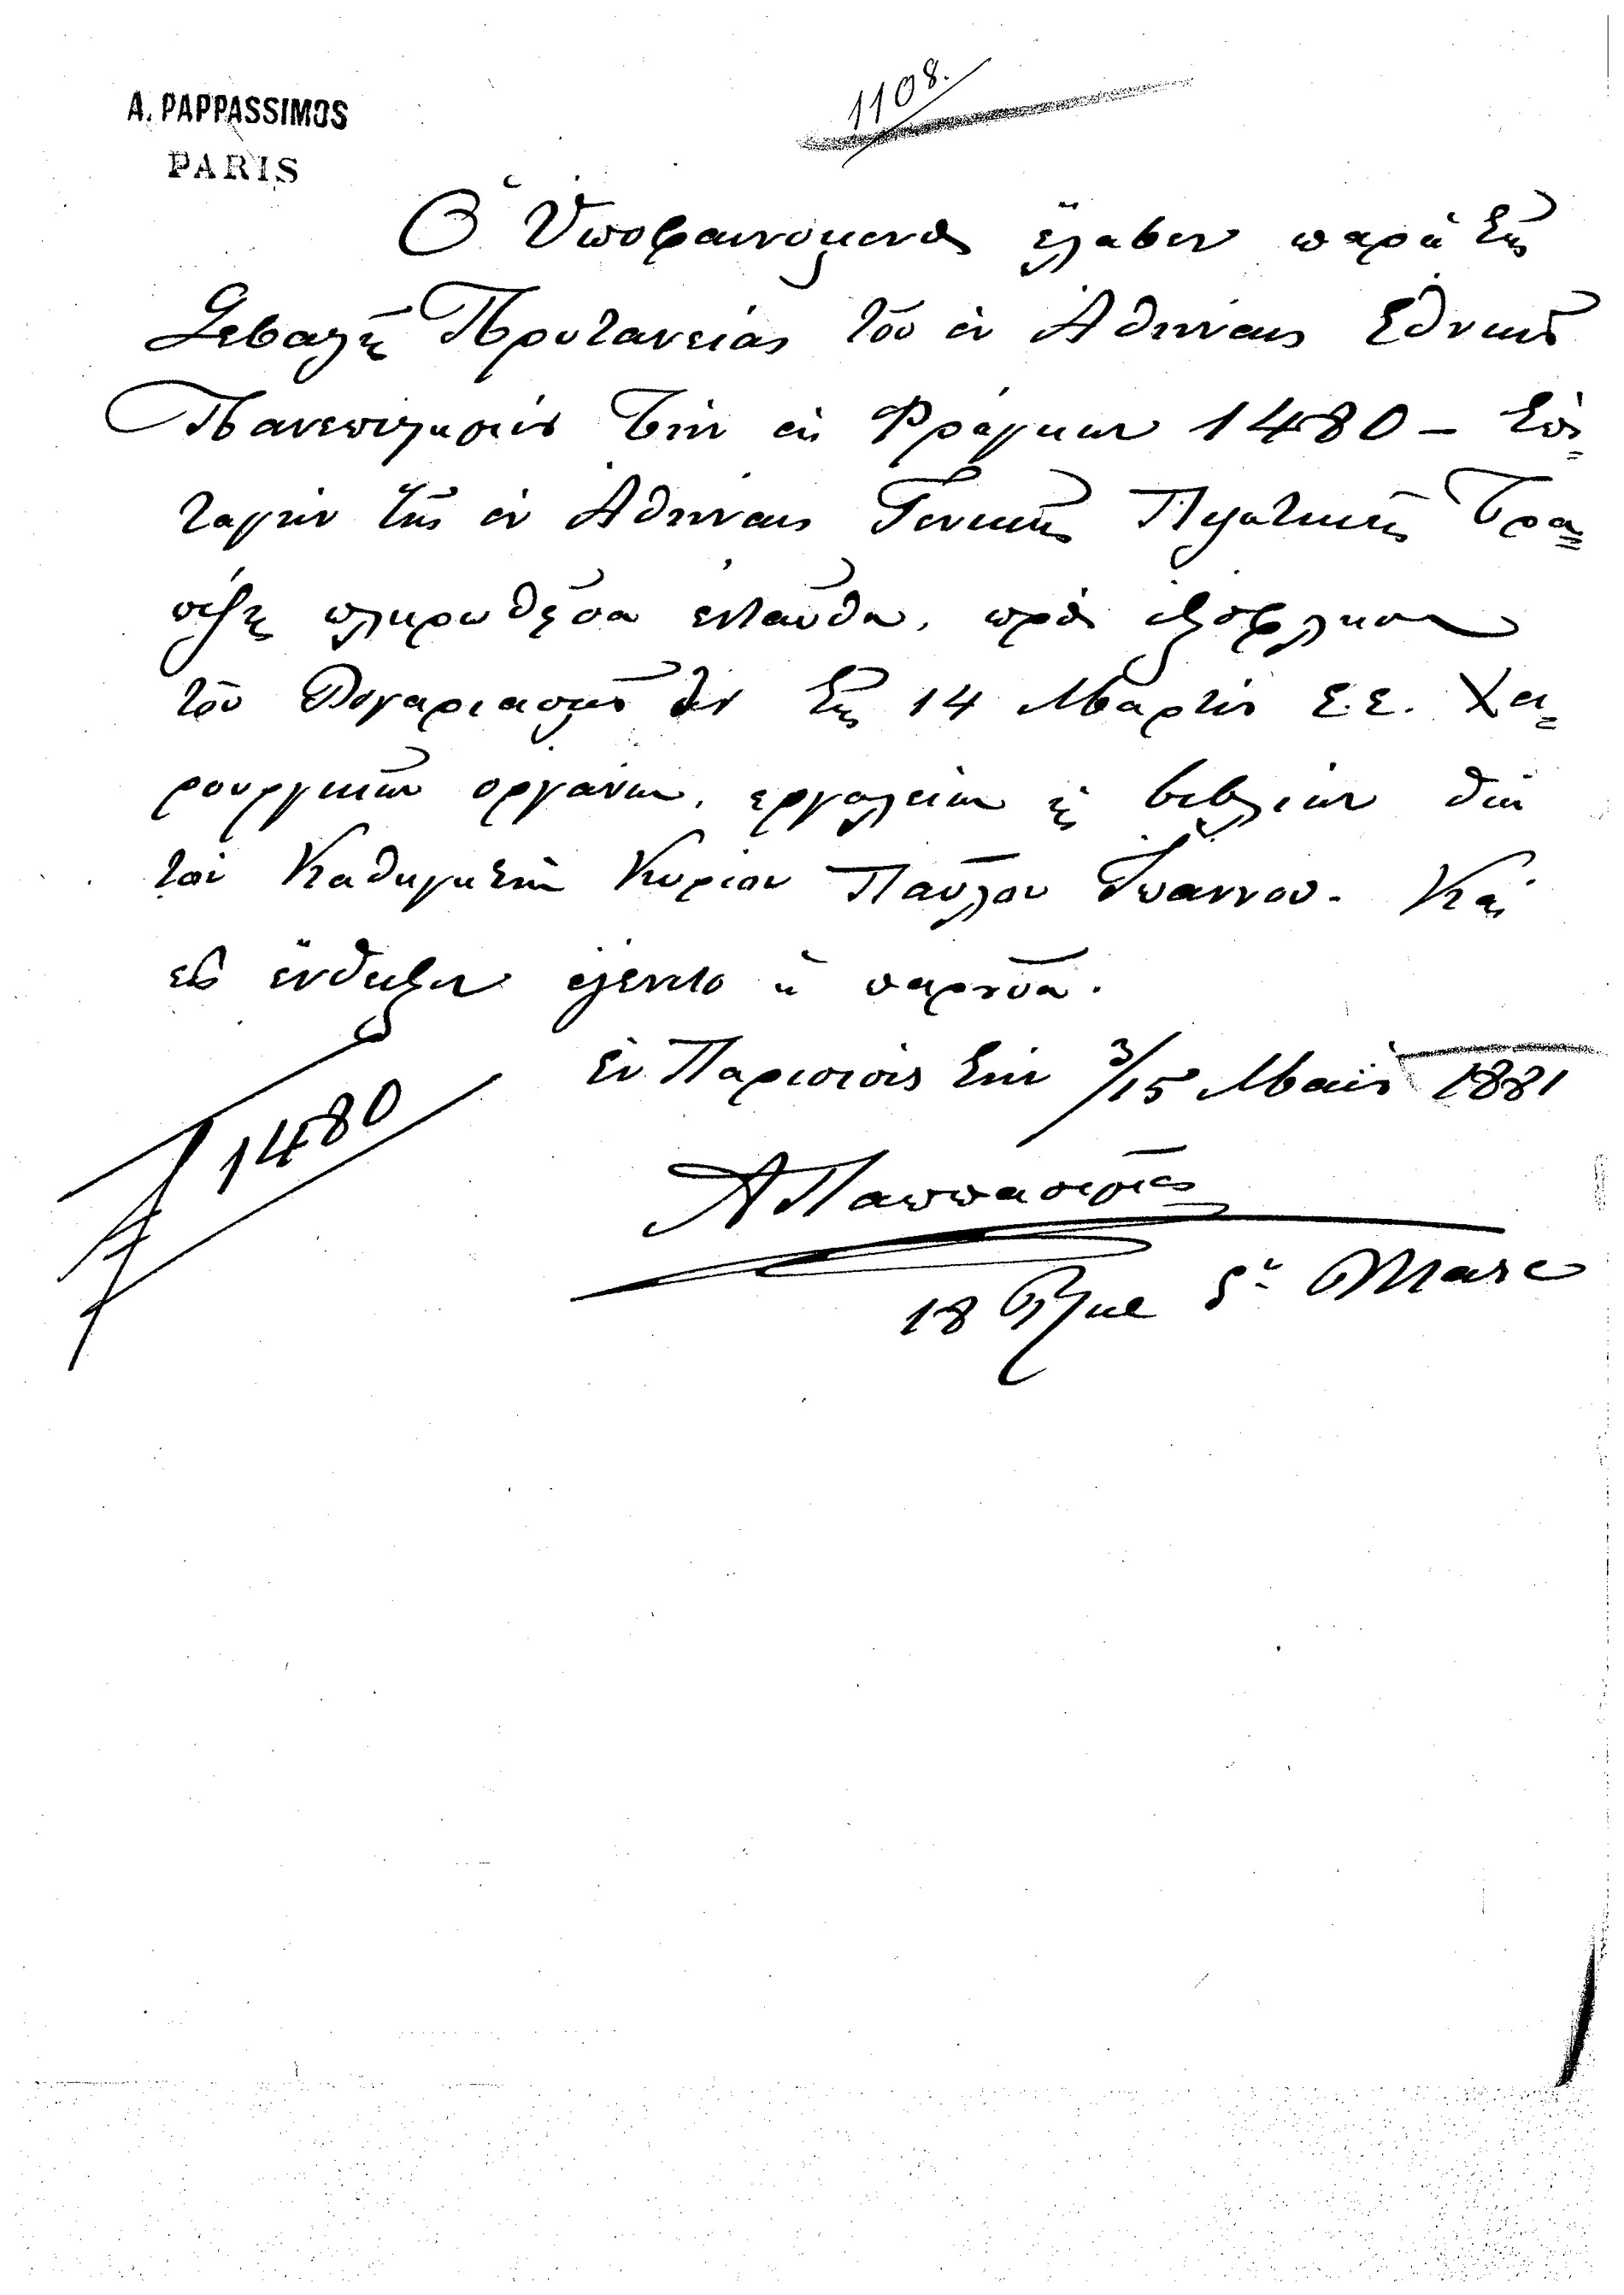 A. PAPPASSIMOS
PARIS
1108.
Ὁ Ὑποφαινόμενος ἔλαβεν παρὰ τῆς
Σεβαστῆς Πρυτανείας τοῦ ἐν Ἀθήναις Ἐθνικοῦ
Πανεπιστημείου τὴν ἐκ Φράγκων 1480 – Ἐπι=
ταγὴν τῆς ἐν Ἀθήναις Γενικῆς Πιστωτικῆς Τρα=
πέζης πληρωθεῖσα ἐνταῦθα, πρὸς ἐξόφλησιν
τοῦ Λογαριασμοῦ τῆς 14 Μαρτίου ἔ.ἔ. Χει=
ρουργικῶν ὀργάνων, ἐργαλείων καὶ βιβλίων διὰ
τὸν Καθηγητὴν Κύριον Παῦλον Ἰωάννου. Καὶ
εἰς ἔνδειξιν ἐγένετο ἡ παροῦσα.
Ἐν Παρισίοις τὴν 3/15 Μαΐου 1881
1480
ΑΠαππασιμος
18 Rue St Marc